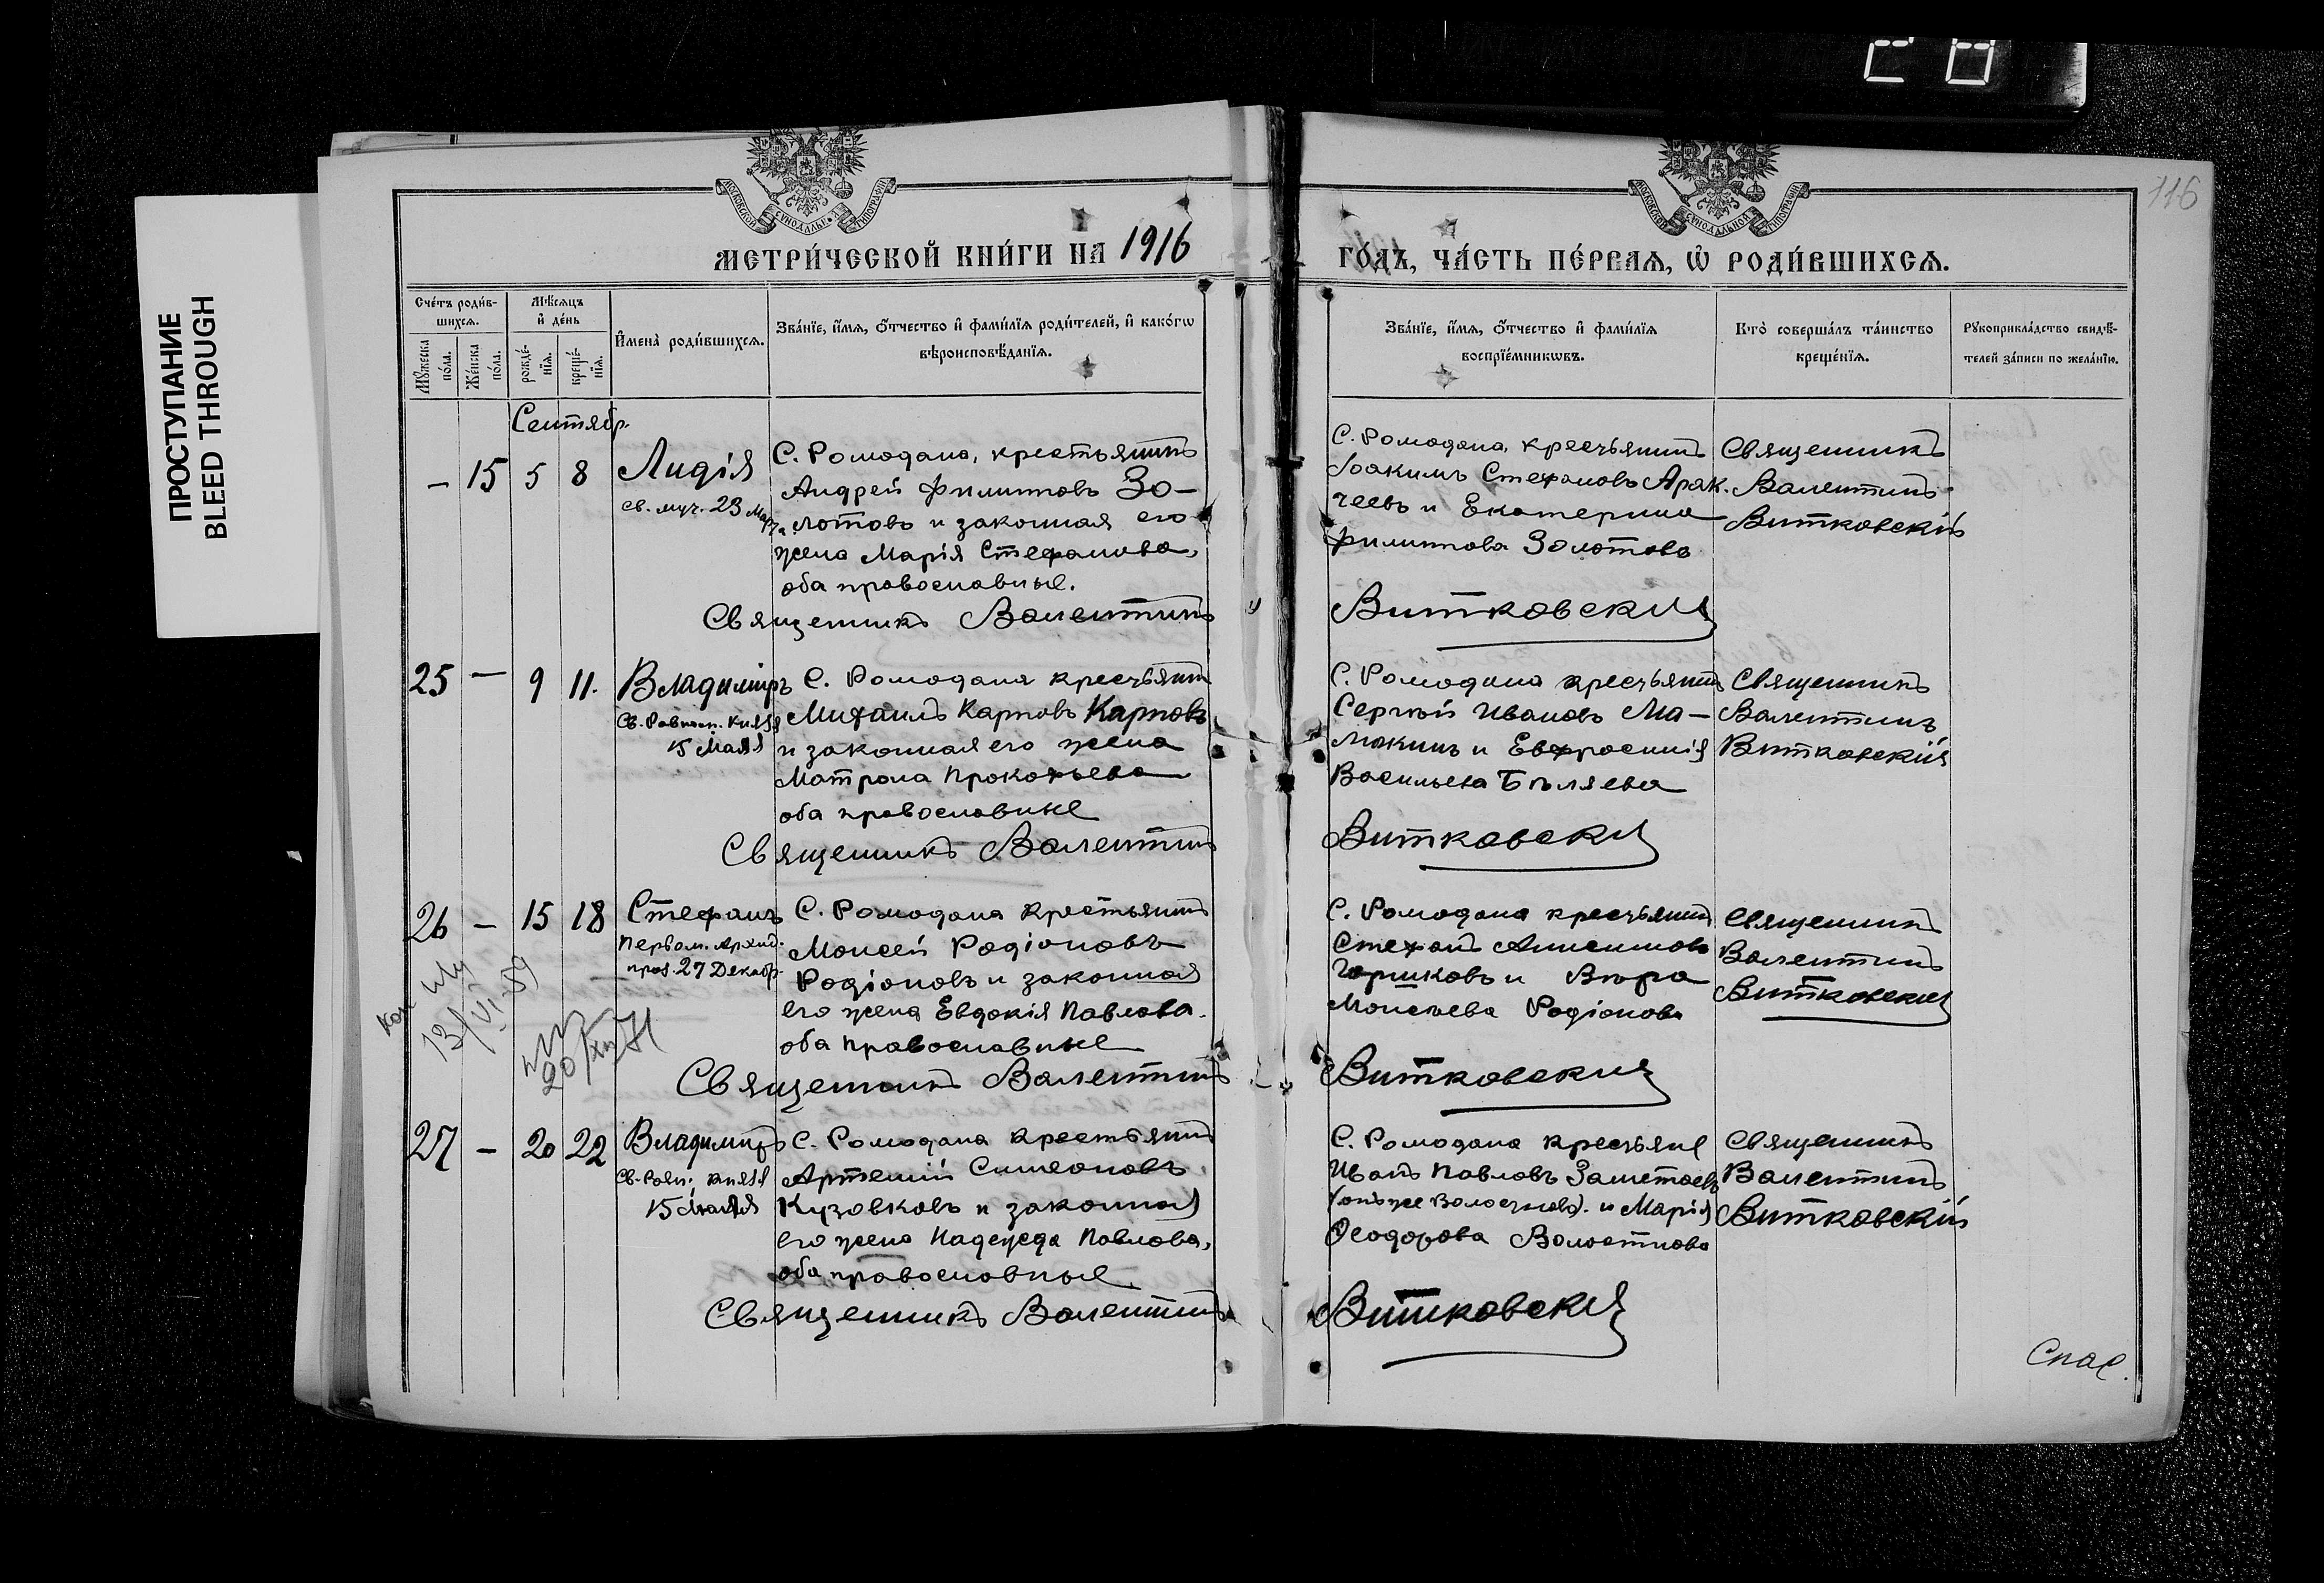 28
ПРОСТУПАНИЕ
BLEED THROUGH
116
МЕТРИ́ЧЕСКОЙ КНИ́ГИ НА 1916
ГО́ДЪ, ЧА́СТЬ ПЕ́РВАѦ, Ѡ РОДИ́ВШИХСѦ.
Сче́тъ роди́в-
шихсѧ.
Мѣ́сѧцъ
и҆ де́нь
Мꙋ́жеска
по́ла.
Же́нска
по́ла.
рожде́-
нїѧ.
креще́-
нїѧ.
И҆мена̀ роди́вшихсѧ.
Зва́нїе, и҆́мѧ, ѻ҆́тчество и҆ фами́лїѧ роди́телей, и҆ како́гѡ
вѣроисповѣ́данїѧ.
Зва́нїе, и҆́мѧ, ѻ҆́тчество и҆ фами́лїѧ
воспрїе́мникѡвъ.
Кто̀ соверша́лъ та́инство
креще́нїѧ.
Рꙋкоприкла́дство свидѣ́-
телей за́писи по жела́нїю.
Сентябр.
– 15 5 8
Лидія
св. муч. 23 Марта
С. Ромодана, крестьянинъ
Андрей Филиповъ Зо-
лотовъ и законная его
жена Марія Стефанова,
оба православные.
Священникъ Валентинъ
С. Ромодана, крестьянинъ
Іоакимъ Стефановъ Арак-
чеевъ и Екатерина
Филиппова Золотова
Витковский
Священникъ
Валентинъ
Витковскій
25 – 9 11.
Владиміръ
Св. Равноап. Князя
15 Мая
С. Ромодана крестьянин
Михаилъ Карповъ Карповъ
и законная его жена
Матрона Прокофьева
оба православные
Священникъ Валентинъ
С. Ромодана крестьянинъ
Сергѣй Ивановъ Ма-
мокинъ и Евфросинія
Васильева Бѣляева
Витковский
Священникъ
Валентинъ
Витковскій
26 – 15 18
Стефанъ
Первом. Архид.
праз. 27 Декабр.
С. Ромодана крестьянинъ
Моисей Родіоновъ
Родіоновъ и законная
его жена Евдокія Павлова.
оба православные
Священникъ Валентинъ
С. Ромодана крестьянинъ
Стефанъ Анисимовъ
Горшковъ и Вѣра
Моисеева Родіонова
Витковский
Священникъ
Валентинъ
Витковский
13/VI-59
20/XII 71
27 – 20 22
Владиміръ
Св. Равн. князя
15 Мая
С. Ромодана крестьянинъ
Артемій Симеоновъ
Кузовковъ и законная
его жена Надежда Павлова,
оба православные.
Священникъ Валентинъ
С. Ромодана крестьяне
Иванъ Павловъ
и Марія
Ѳеодорова
Витковский
Священникъ
Валентинъ
Витковскій
Спас.